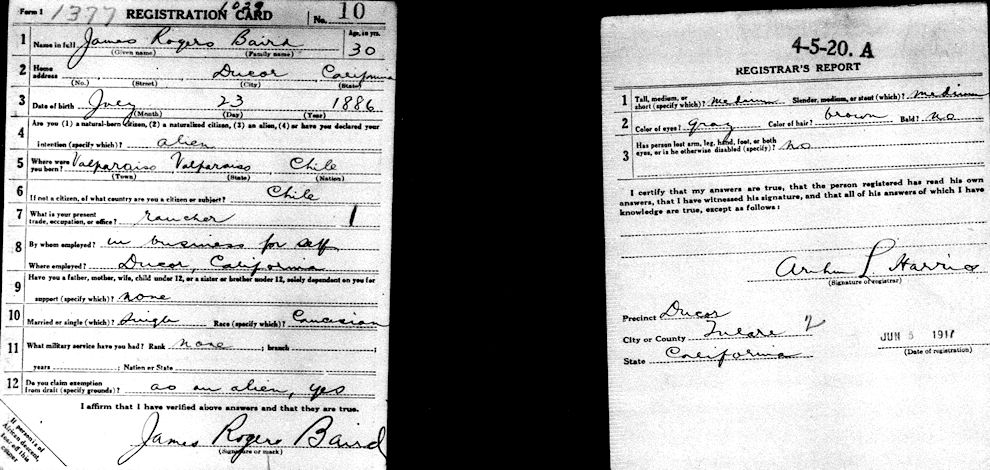 Form 1 1377 REGISTRATION CARD 1039 No. 10
1 Name in full James Rogers Baird Age, in yrs. 30
(Given name) (Family name)
2 Home address Ducor California
(No.) (Street) (City) (State)
3 Date of birth July 23 1886
(Month) (Day) (Year)
4 Are you (1) a natural-born citizen, (2) a naturalized citizen, (3) an alien, (4) or have you declared your
intention (specify which)? alien
5 Where were you born? Valparaiso Valparaiso Chile
(Town) (State) (Nation)
6 If not a citizen, of what country are you a citizen or subject? Chile
7 What is your present trade, occupation, or office? rancher 1
8 By whom employed? in business for self
Where employed? Ducor, California
9 Have you a father, mother, wife, child under 12, or a sister or brother under 12, solely dependent on you for
support (specify which)? none
10 Married or single (which)? Single Race (specify which)? Caucasian
11 What military service have you had? Rank none ; branch ;
years ; Nation or State
12 Do you claim exemption from draft (specify grounds)? as an alien, yes
I affirm that I have verified above answers and that they are true.
James Rogers Baird
(Signature or mark)
If person is of
African descent,
tear off this
corner
4-5-20. A
REGISTRAR'S REPORT
1 Tall, medium, or short (specify which)? Medium Slender, medium, or stout (which)? Medium
2 Color of eyes? gray Color of hair? brown Bald? No
3 Has person lost arm, leg, hand, foot, or both
eyes, or is he otherwise disabled (specify)? No
I certify that my answers are true, that the person registered has read his own
answers, that I have witnessed his signature, and that all of his answers of which I have
knowledge are true, except as follows:
Arthur L Harris
(Signature of registrar)
Precinct Ducor
City or County Tulare 2
State California
JUN 5 1917
(Date of registration)